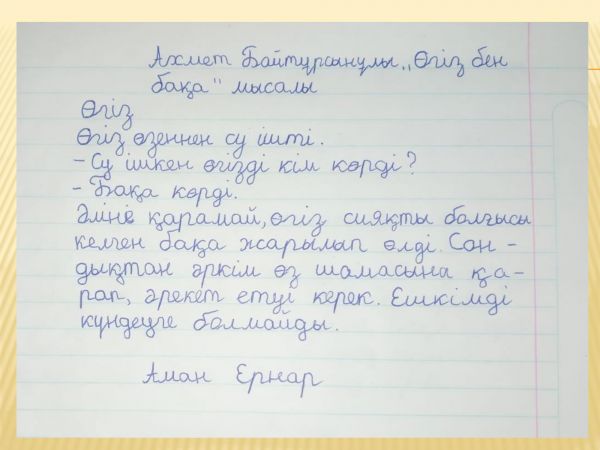 Ахмет Байтұрсынұлы „Өгіз бен
бақа" мысалы
Өгіз
Өгіз өзеннен су ішті.
- Су ішкен өгізді кім көрді?
- Бақа көрді.
Әліне қарамай, өгіз сияқты болғысы
келген бақа жарылып өлді. Сон -
дықтан әркім өз шамасына қа -
рап, әрекет етуі керек. Ешкімді
күндеуге болмайды.
Аман Ернар